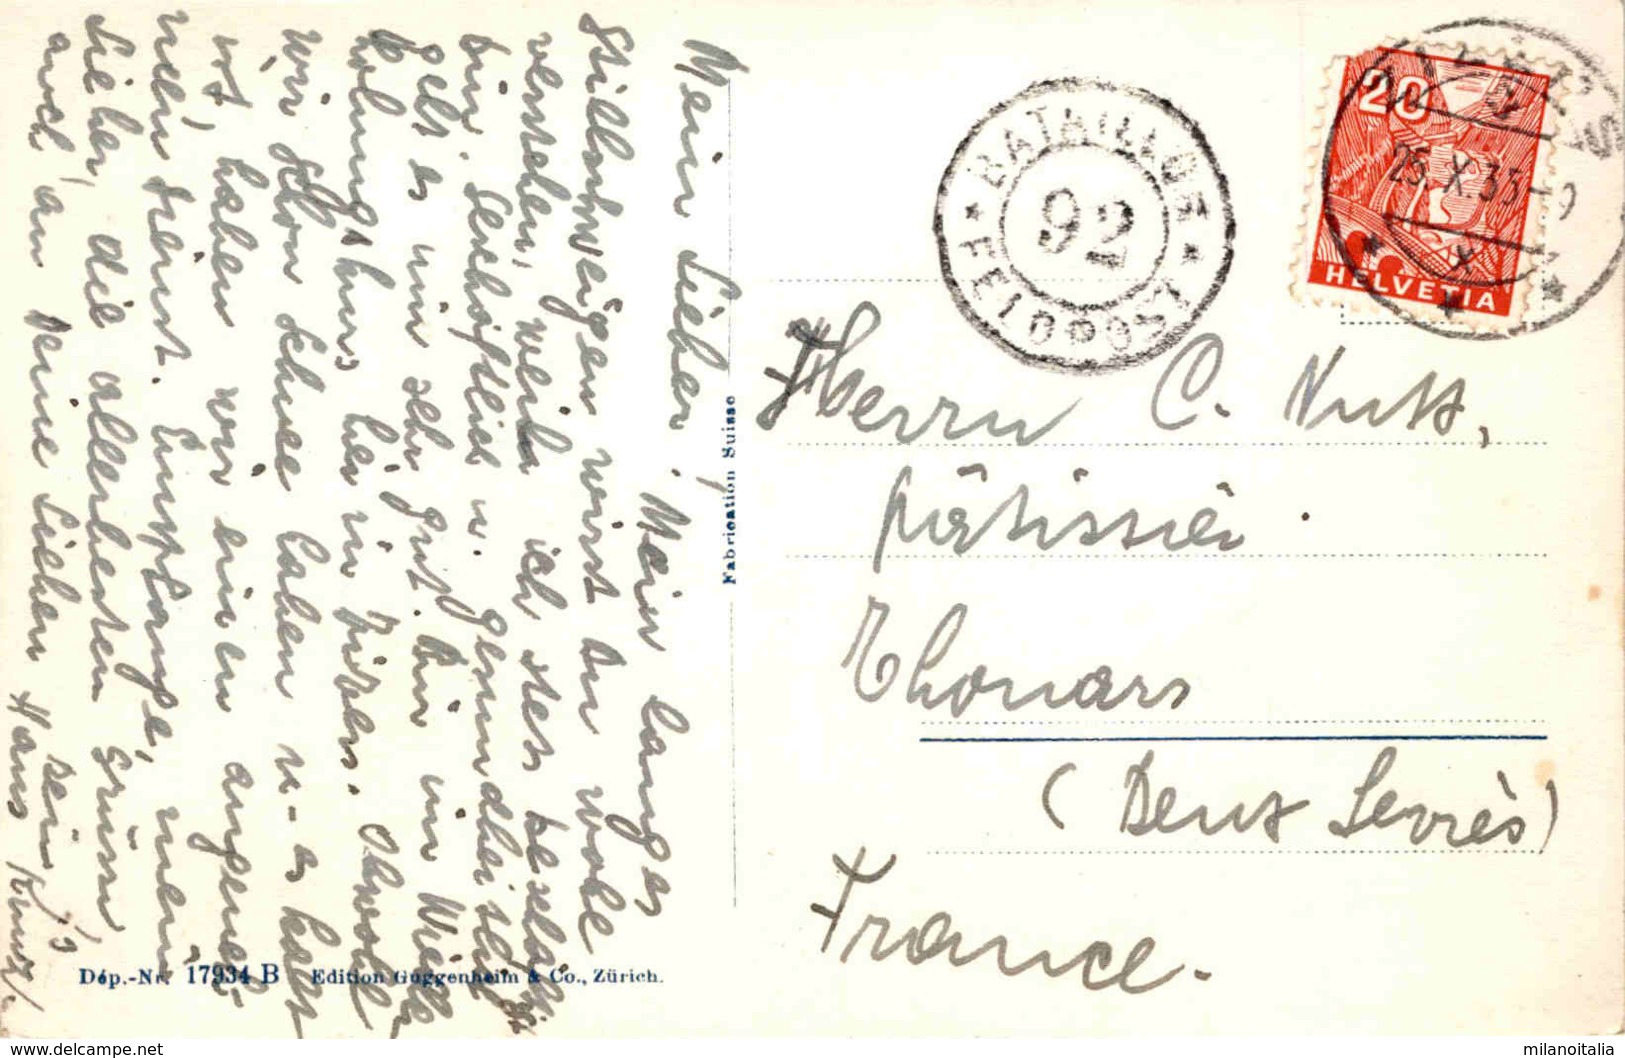 Mein Lieber! Mein langes
Stillschweigen wirst Du wohl
verstehen, weil ich stets beschäftigt
bin. Geschäftlich u. gesundheitlich
geht es mir sehr gut. Bin im Wieder-
holungskurs hier in Zivlers. Obwohl
wir schon Schnee haben u. es kalt
ist, haben wir einen angeneh-
men Dienst. Empfange, mein
Lieber, die allerbesten Grüsse,
auch an Deine Lieben
Dein
Hans Kunz
Fabrication Suisse
Dép.-Nr. 17934 B Edition Guggenheim & Co., Zürich.
BATAILLON
92
FELDPOST
20
HELVETIA
25.X.35-9
Herrn C. Nuss,
pâtissier
Thouars
(Deux Sevrès)
France.
delcampe.net
milanoitalia